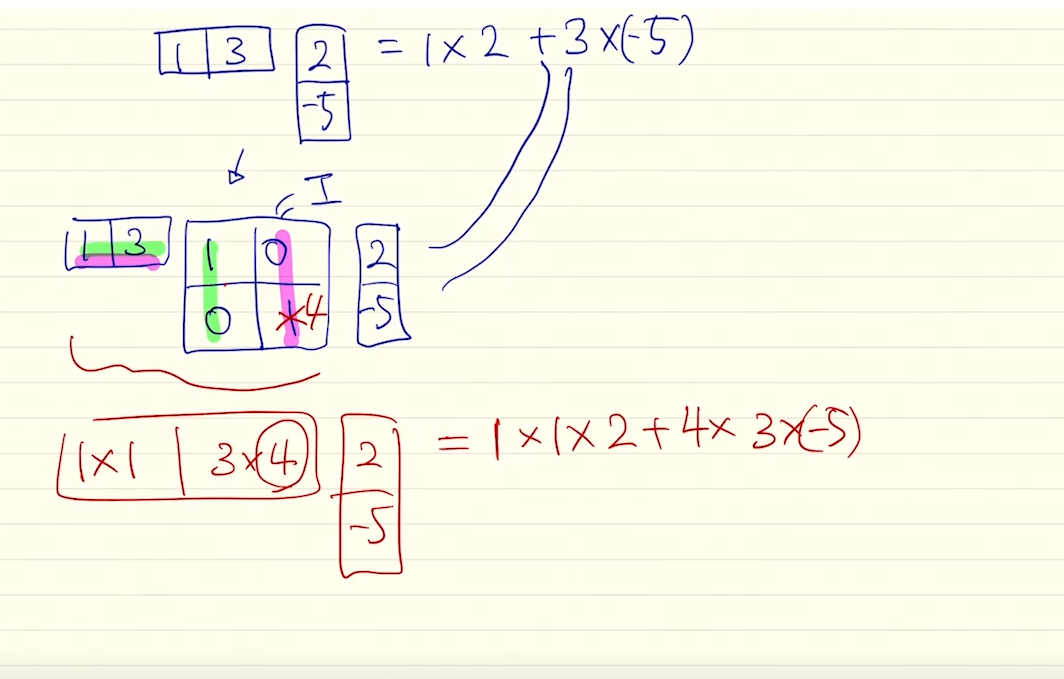 1 3 2 = 1 × 2 + 3 × (-5)
-5
I
1 3 1 0 2
0 1 4 -5
1×1 3×4 2 = 1 × 1 × 2 + 4 × 3 × (-5)
-5